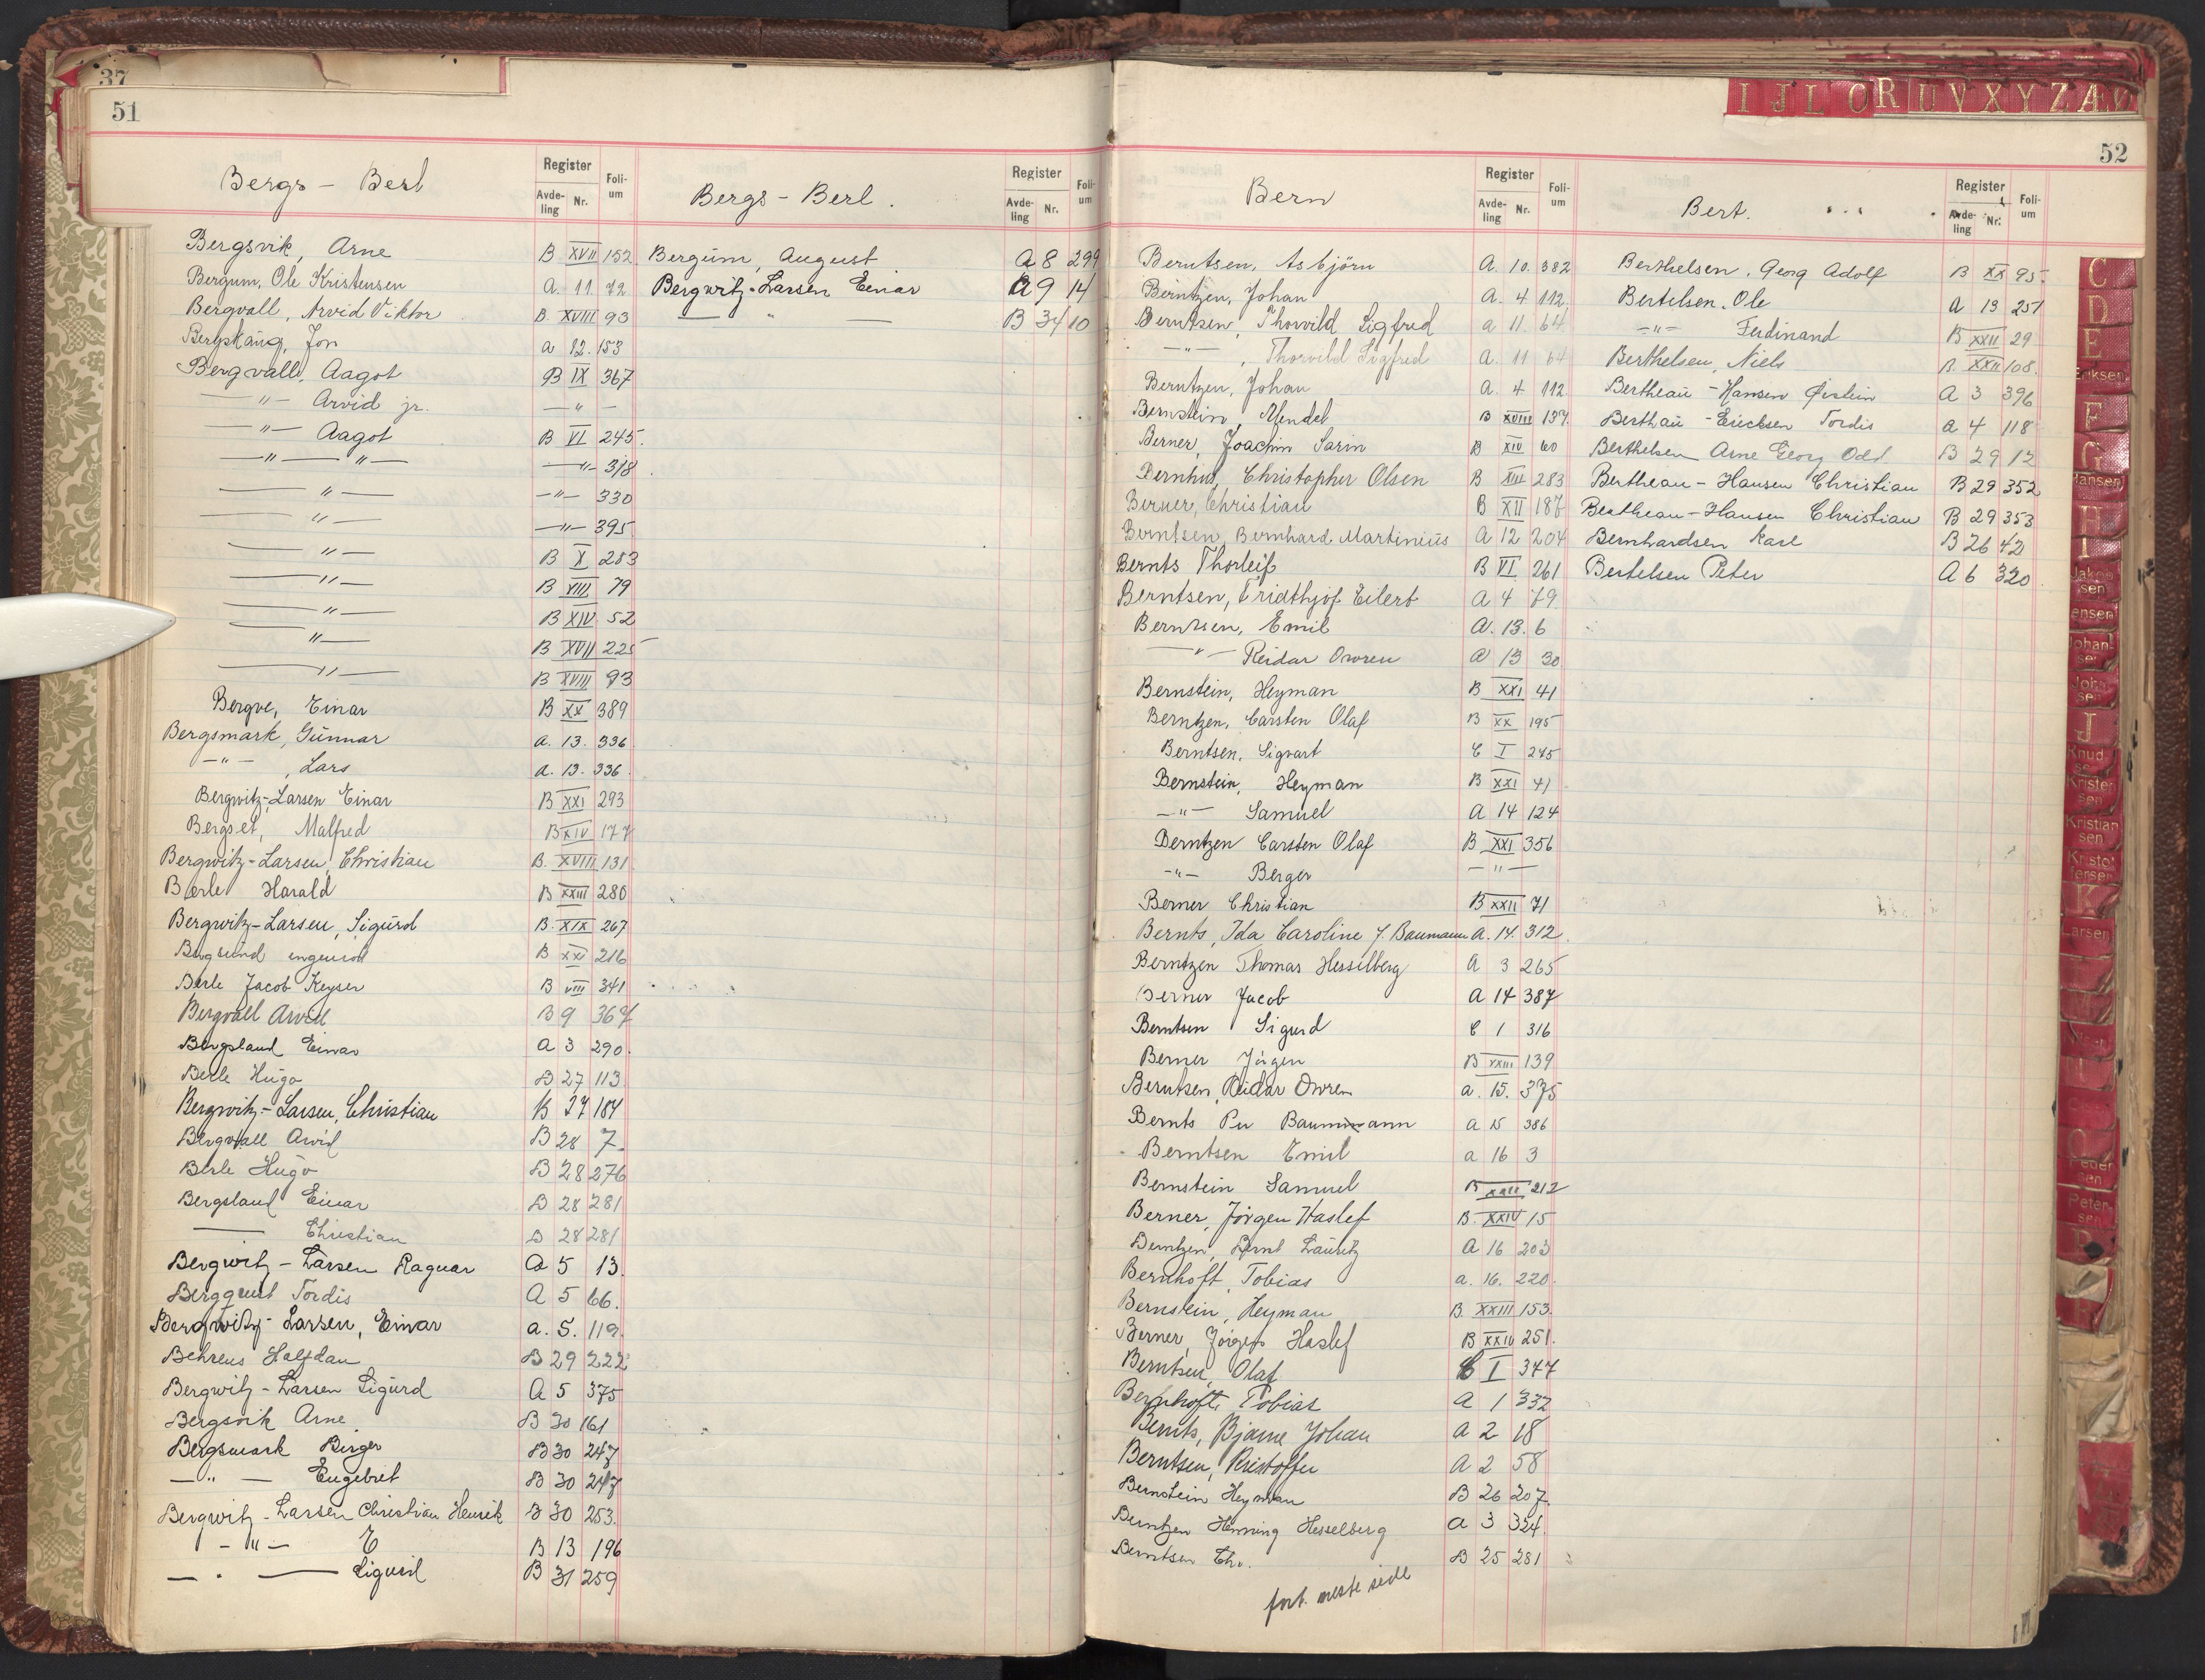 37
51
Bergs - Berl
Register
Avde-
ling
Nr.
Foli-
um
Bergsvik, Arne B XVII 152
Bergum, Ole Kristensen A. 11. 72
Bergvall, Arvid Viktor B. XVIII 93
Jon a 12. 153
Bergvall, Aagot B IX 367
— " — Arvid jr. — " —
— " — Aagot B VI 245.
— " — " — — " — 318
— " — — " — 330
— " — — " — 395
— " — B X 283
— " — B VIII 79
— " — B XIV 52
— " — B XVII 225
— " — B XVIII 93
Bergve, Einar B XX 389
Bergsmark, Gunnar a. 13. 336
— " — , Lars a. 13. 336.
Bergwitz-Larsen Einar B XXI 293
Bergset, Malfred B XIV 177
Bergwitz-Larsen, Christian B. XVIII 131
Berle Harald B XXIII 280
Bergwitz-Larsen, Sigurd B. XIX 267
Bergsund B XXI 216
Berle Jacob Keyser B VIII 341
Bergvall Arvid B 9 367
Bergsland Einar a 3 290.
Berle Hugo B 27 113
Bergwitz-Larsen, Christian B 27 184
Bergvall Arvid B 28 7
Berle Hugo B 28 276
Bergsland Einar B 28 281
—— Christian B 28 281
Bergwitz-Larsen Ragnar A 5 13.
Bergquist Tordis A 5 66.
Bergwitz-Larsen, Einar a. 5. 119.
Behrens Halfdan B 29 222
Bergwitz-Larsen Sigurd A 5 375
Bergsvik Arne B 30 161
Bergsmark Birger B 30 247
— " — Engebret B 30 247
Bergwitz-Larsen Christian Henrik B 30 253.
— " — E B 13 196
— " — Sigurd B 31 259
Bergs - Berl.
Register
Avde-
ling
Nr.
Foli-
um
Bergum, August A 8 299
Bergwitz-Larsen Einar A 9 14
— " — B 34 10
52
Bern
Register
Avde-
ling
Nr.
Foli-
um
Berntsen, Asbjörn A. 10. 382
Berntzen, Johan A. 4 112.
Berntsen, Thorvild Sigfred a 11. 64
— " — , Thorvild Sigfred A. 11 64
Berntzen, Johan A. 4 112
Bernstein, Mendel B XVIII 137.
Berner, Joachim Sarin B XIV 60
Bernhus, Christopher Olsen B XIII 283
Berner, Christian B XII 187
Berntsen, Bernhard Martinius A 12 204
Bernts Thorleif B VI 261
Berntsen, Fridthjof Eilert A 4 79
Berntsen, Emil A. 13. 6
— " — Reidar Owren A 13 30
Bernstein, Heyman B XXI 41
Berntzen, Carsten Olaf B XX 195
Berntsen, Sigvart C I 245
Bernstein, Heyman B XXI 41
— " — Samuel A 14 124
Berntzen Carsten Olaf B XXI 356
— " — Berger — " —
Berner Christian B XXII 71
Bernts, Ida Caroline f. Baumann A. 14. 312.
Berntzen Thomas Hesselberg A 3 265
Berner Jacob A 14 387
Berntsen Sigurd C 1 316
Berner Jörgen B XXIII 139
Berntsen, Reidar Owren a. 15. 375
Bernts Per Baumann a 15 386
Berntsen Emil a 16 3
Bernstein Samuel B XXIII 212
Berner, Jörgen Haslef B. XXIV 15
Berntzen, Bernt Lauritz A 16 203
Bernhoft, Tobias a. 16. 220.
Bernstein, Heyman B. XXIII 153.
Berner, Jörgen Haslef B XXIV 251.
Berntsen, Olaf C I 347
Bernhoft, Tobias A 1 332
Bernts, Bjarne Johan A 2 18
Berntsen, Kristoffer A 2 58
Bernstein Heyman B 26 207.
Berntzen Henning Hesselberg a 3 324.
Berntsen Chr. B 25 281
fort. neste side
Bert.
Register
Avde-
ling
Nr.
Foli-
um
Berthelsen, Georg Adolf B XX 95.
Bertelsen, Ole A 13 251
— " — Ferdinand B XXII 29
Berthelsen, Niels B XXII 108.
Bertheau-Hansen Øistein A 3 396
Berthau-Ericksen Tordis a 4 118
Berthelsen Arne Georg Odd B 29 12
Bertheau-Hansen Christian B 29 352
Bertheau-Hansen Christian B 29 353
Bernhardsen Karl B 26 42
Bertelsen Peter A 6 320
I J L O R U V X Y Z Æ Ø
C
D
E
Eriksen
F
G
Hansen
H
I
Jakob
sen
Jensen
Johan-
sen
John
sen
J
Knud
sen
Kristen
sen
Kristian
sen
Kristof
fersen
K
Larsen
Peder
sen
Peter-
sen
P
R